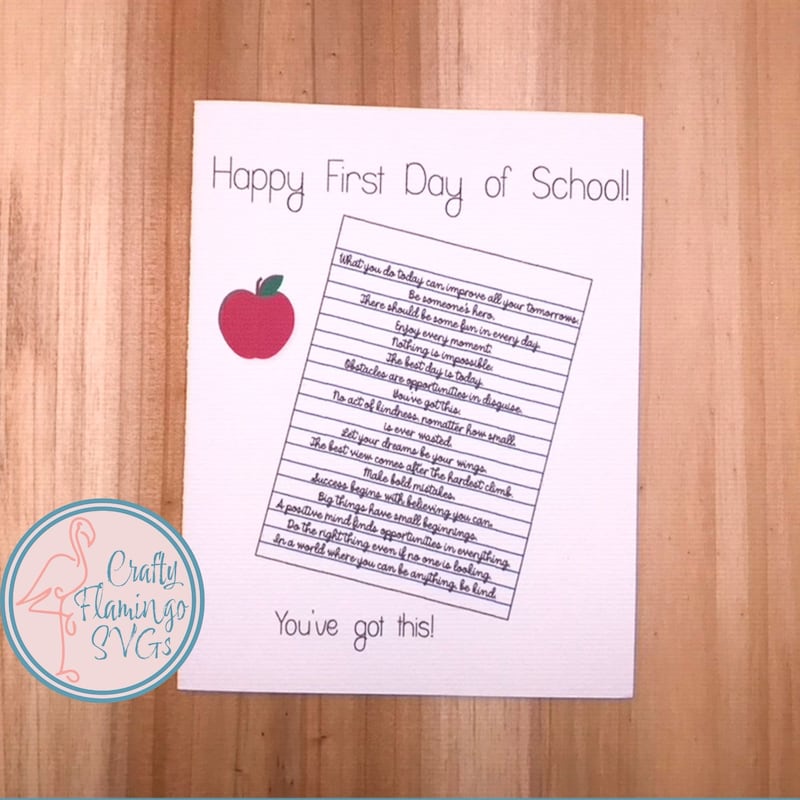 Happy First Day of School!
What you do today can improve all your tomorrows.
Be someone's hero.
There should be some fun in every day.
Enjoy every moment.
Nothing is impossible.
The best day is today.
Obstacles are opportunities in disguise.
You've got this.
No act of kindness, nomatter how small,
is ever wasted.
Let your dreams be your wings.
The best view comes after the hardest climb.
Make bold mistakes.
Success begins with believing you can.
Big things have small beginnings.
A positive mind finds opportunities in everything.
Do the right thing even if no one is looking.
In a world where you can be anything, be kind.
You've got this!
Crafty
Flamingo
SVGs